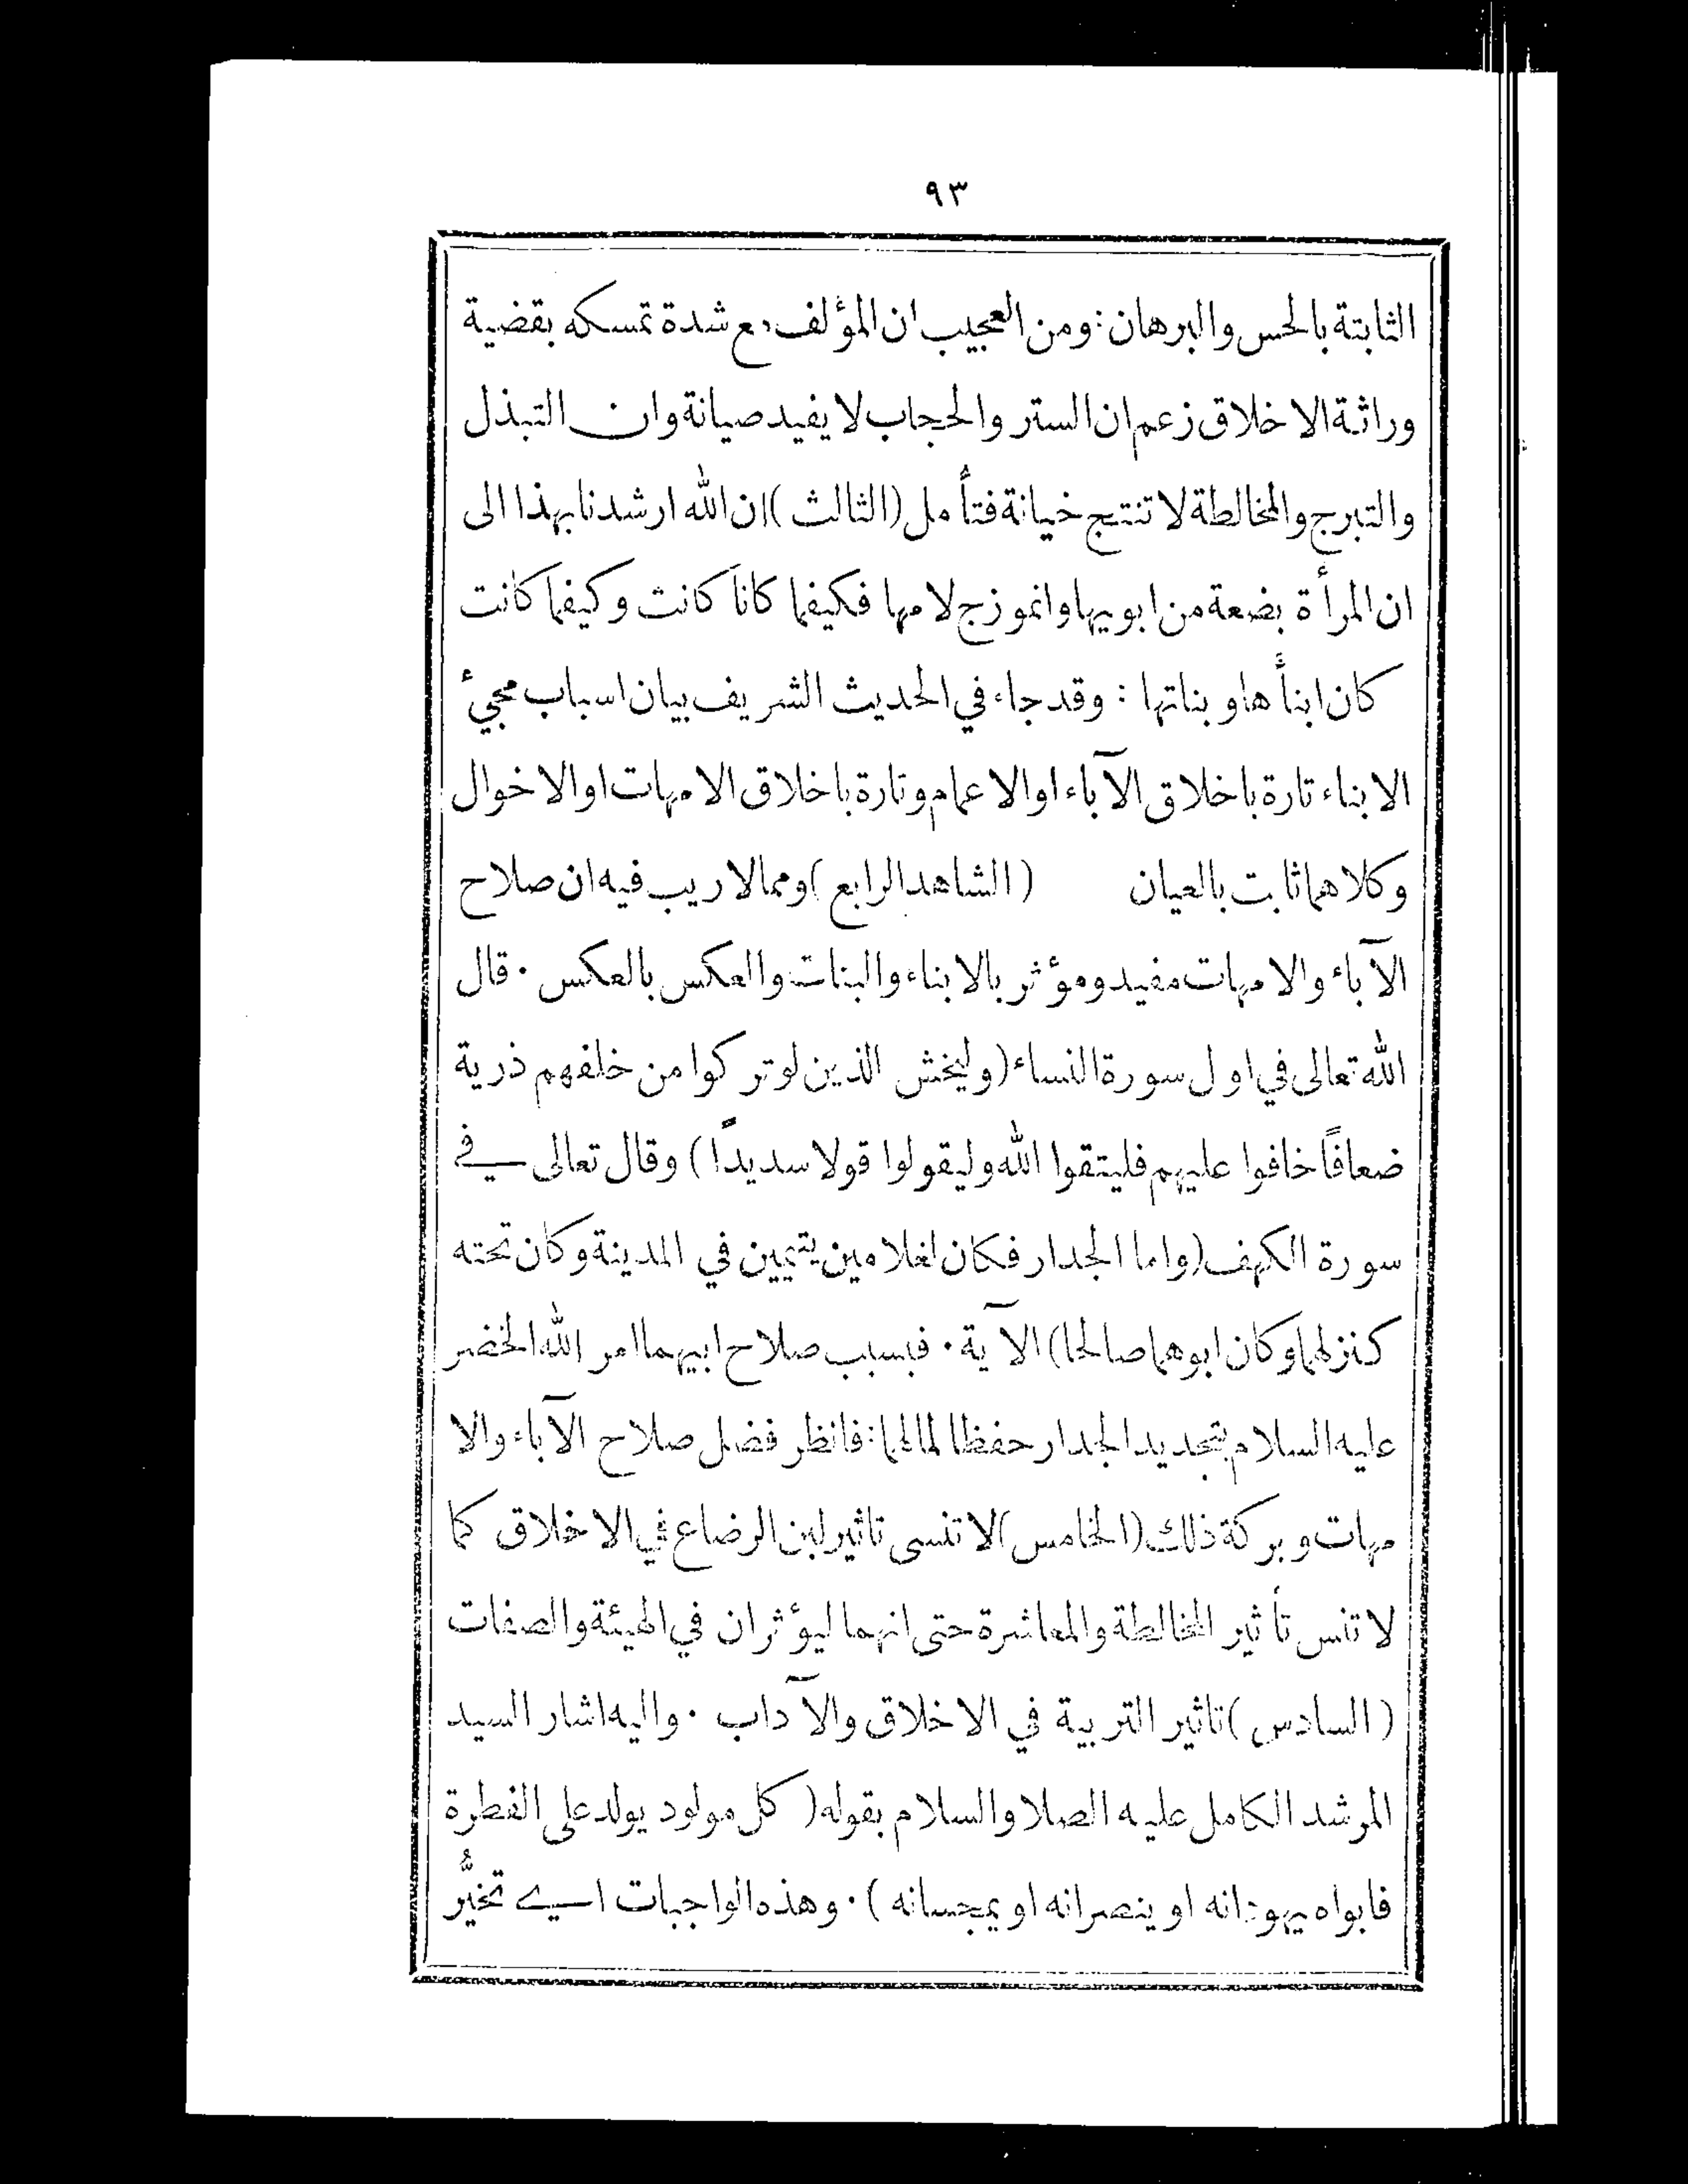 ٩٣
الثابتة بالحس والبرهان: ومن العجيب ان المؤلف مع شدة تمسكه بقضية
وراثة الاخلاق زعم ان الستر والحجاب لا يفيد صيانة وان التبذل
والتبرج والمخالطة لا تنتج خيانة فتأمل (الثالث) ان الله ارشدنا بهذا الى
ان المرأة بضعة من ابويها وانموزج لامها فكيفما كانا كانت وكيفما كانت
كان ابنأها وبناتها : وقد جاء في الحديث الشريف بيان اسباب مجيئ
الابناء تارة باخلاق الآباء او الاعمام وتارة باخلاق الامهات او الاخوال
وكلاهما ثابت بالعيان (الشاهد الرابع) ومما لا ريب فيه ان صلاح
الآباء والامهات مفيد ومؤثر بالابناء والبنات والعكس بالعكس . قال
الله تعالى في اول سورة النساء (وليخش الذين لو تركوا من خلفهم ذرية
ضعافاً خافوا عليهم فليتقوا الله وليقولوا قولا سديداً) وقال تعالى في
سورة الكهف (واما الجدار فكان لغلامين يتيمين في المدينة وكان تحته
كنز لهما وكان ابوهما صالحا) الآية . فبسبب صلاح ابيهما امر الله الخضر
عليه السلام بتجديد الجدار حفظا لمالهما: فانظر فضل صلاح الآباء والا
مهات وبركة ذلك (الخامس) لا تنسى تاثير لبن الرضاع في الاخلاق كما
لا تنس تأثير المخالطة والمعاشرة حتى انهما ليؤثران في الهيئة والصفات
(السادس) تاثير التربية في الاخلاق والآداب . واليه اشار السيد
المرشد الكامل عليه الصلا والسلام بقوله (كل مولود يولد على الفطرة
فابواه يهودانه او ينصرانه او يمجسانه) . وهذه الواجبات اي تخيُّر